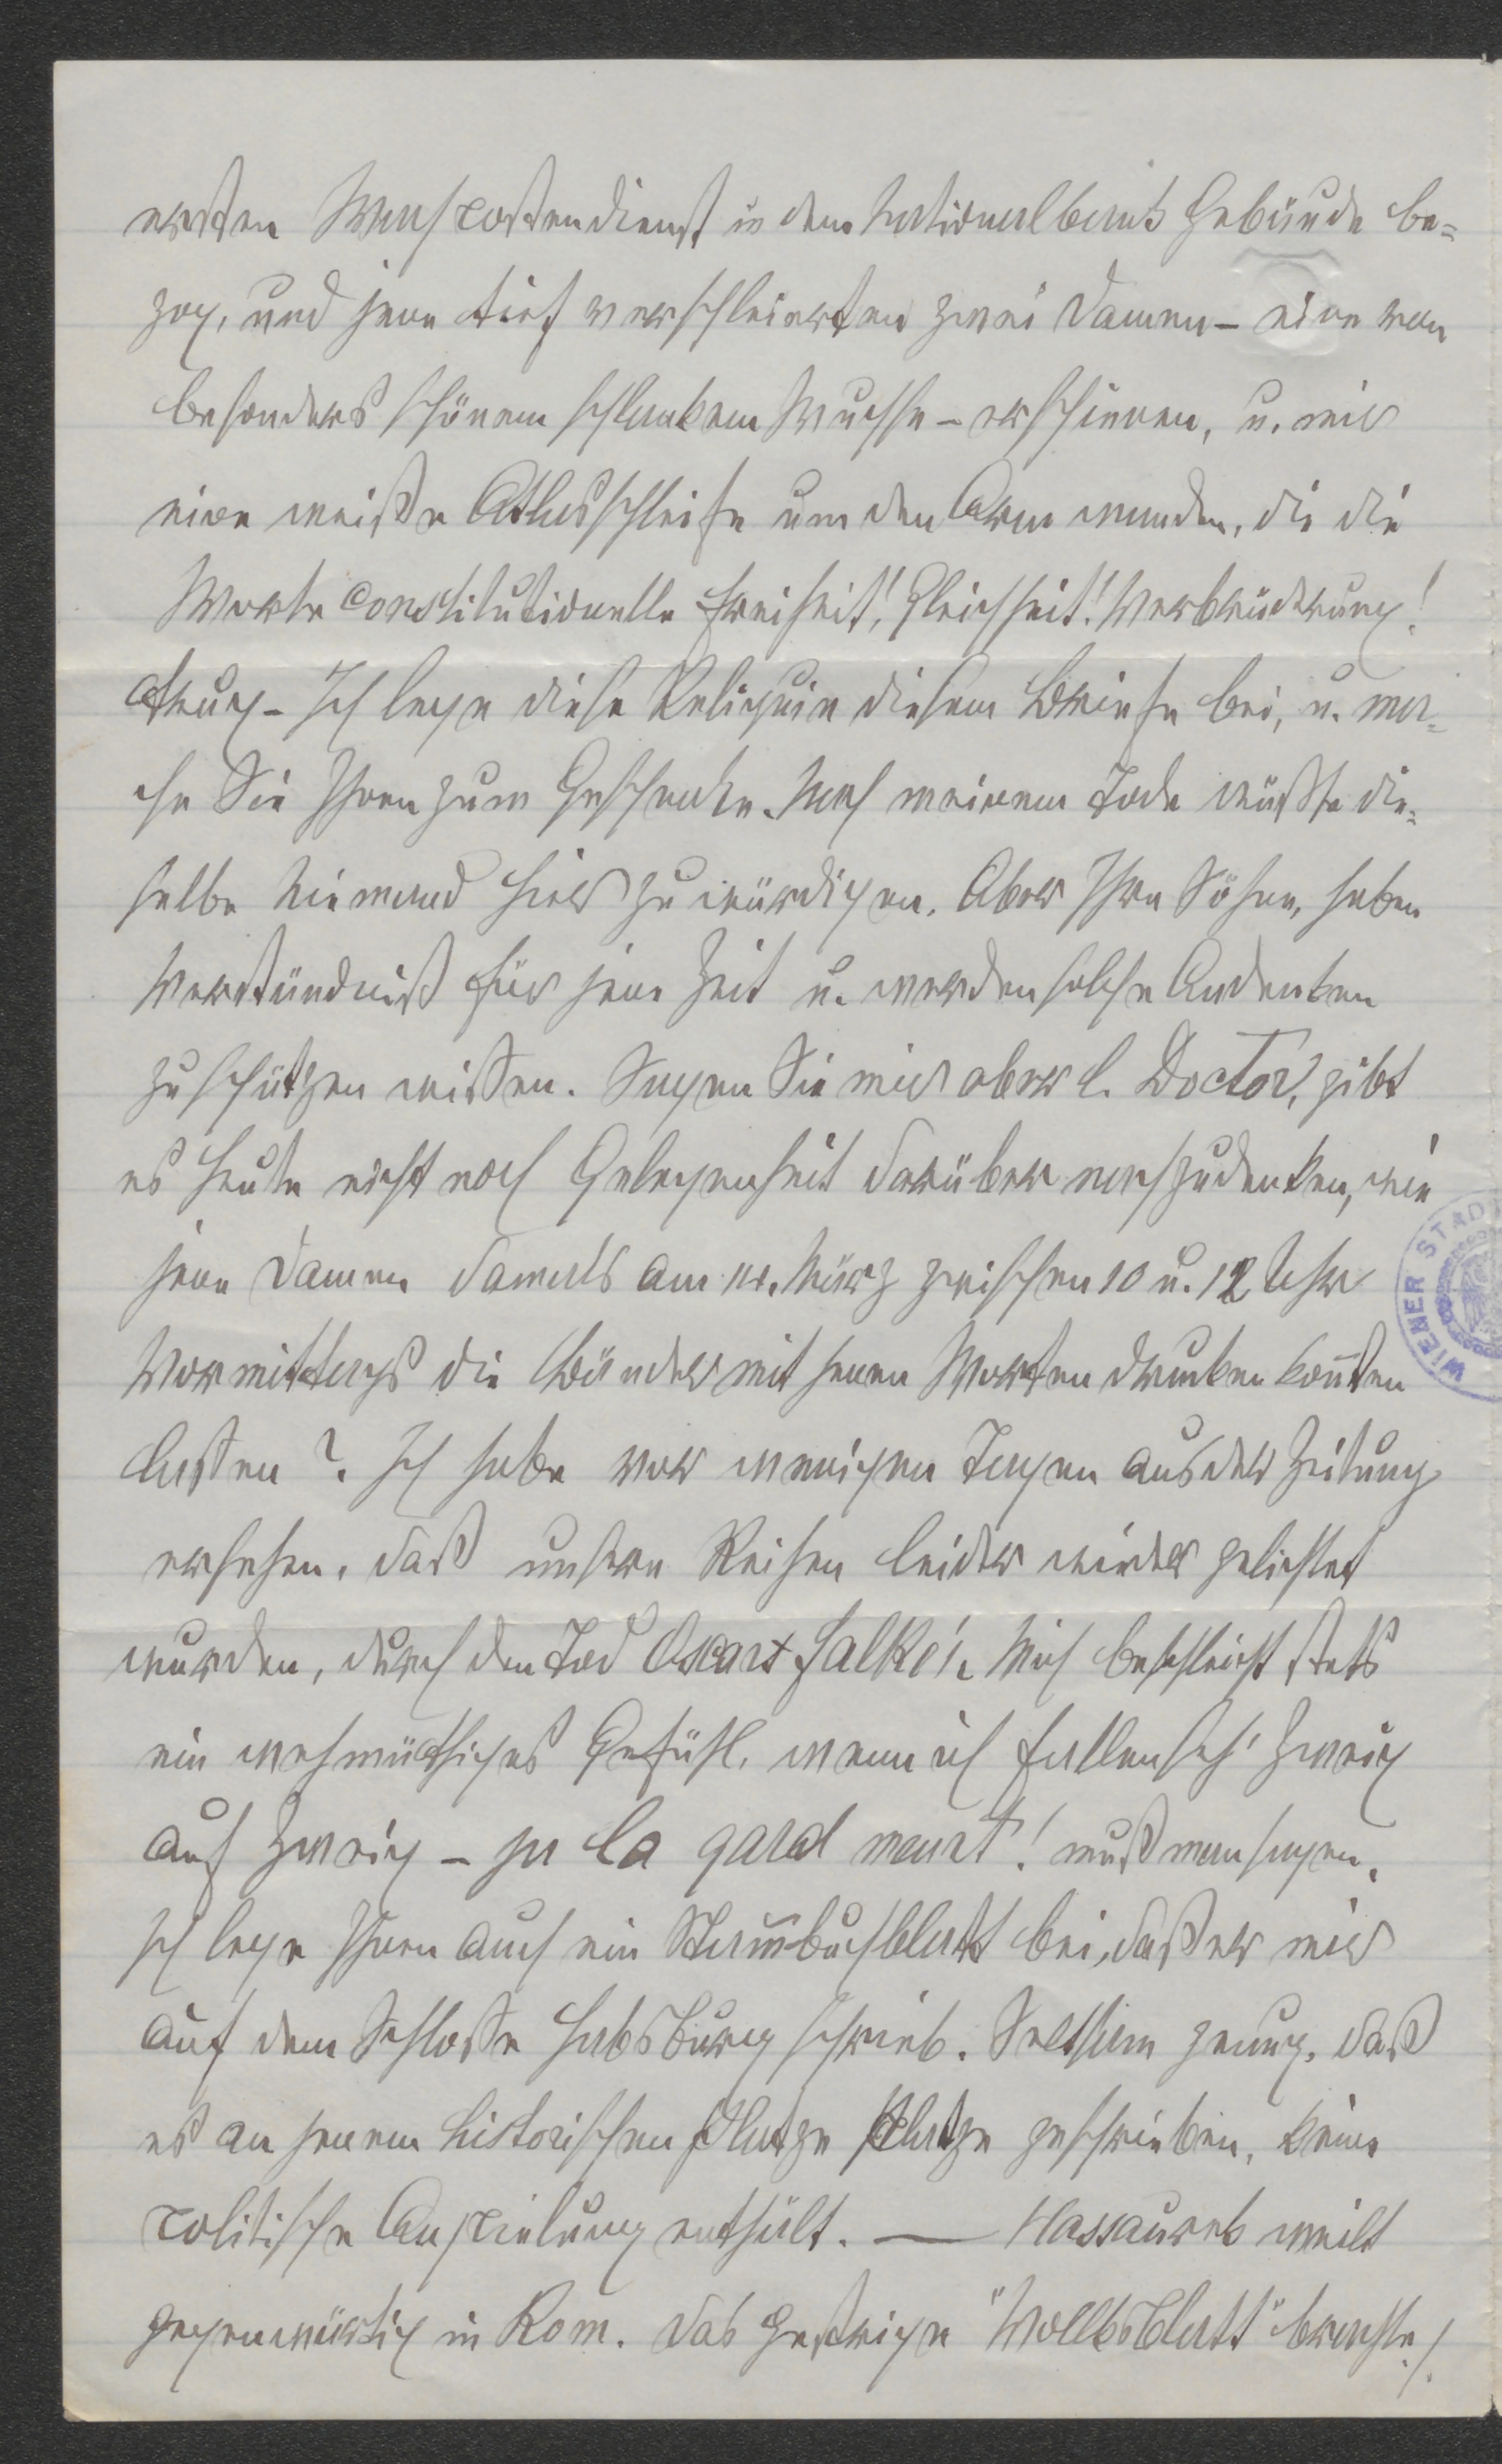 ersten Wachpostendienst in dem Nationalbank Gebäude be=
zog, und jene tief verschleierten zwei Damen – eine von
besonders schönem schlankem Wuchse – erschienen, u. mir
eine weiße Atlasschleife um den Arm wanden, die die
Worte Constitutionelle Freiheit! Gleichheit! Verbrüderung!
trug – Ich lege diese Reliquie diesem Briefe bei, u. ma=
che Sie Ihnen zum Geschenke. Nach meinem Tode wüßte die=
selbe Niemand hier zu würdigen. Aber Ihre Söhne, haben
Verständniß für jene Zeit u. werden solche Andenken
zu schätzen wissen. Sagen Sie mir aber l. Doctor, gibt
es heute nicht noch Gelegenheit darüber nachzudenken, wie
jene Damen damals am 14. März zwischen 10 u. 12 Uhr
Vormittags die Bänder mit jenen Worten drucken konnten
lassen? Ich habe vor wenigen Tagen aus der Zeitung
ersehen, daß unsere Reihen leider wieder gelichtet
wurden, durch den Tod Oscar Falke's. Mich beschleicht stets
ein wehmüthiges Gefühl, wenn ich fallen seh' Zweig
auf Zweig – ja la gard meurt! muß man sagen.
Ich lege Ihnen auch ein Stammbuchblatt bei, daß er mir
auf dem Schloße Habsburg schrieb. Seltsam genug, daß
es an jenem historischen Platze geschrieben, keine
politische Anspielung enthält. — Hassaurek weilt
gegenwärtig in Rom. Das gestrige "Volksblatt" brachte /.
WIENER STAD